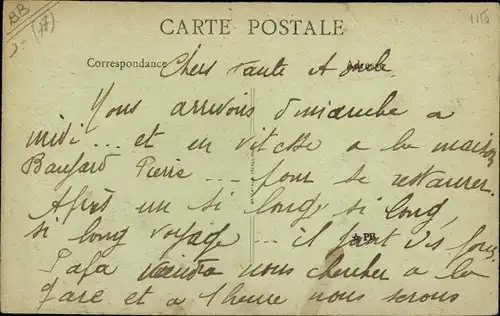 BB
(77)
1150
CARTE POSTALE
Correspondance
Chers tante et oncle
Nous arrivons dimanche a
midi ... et en vitesse a la maison
Pierre ... pour se restaurer.
Après un si long si long,
si long voyage ... il faut des forces.
PB
Papa viendra nous chercher a la
gare et a 1 heure nous serons